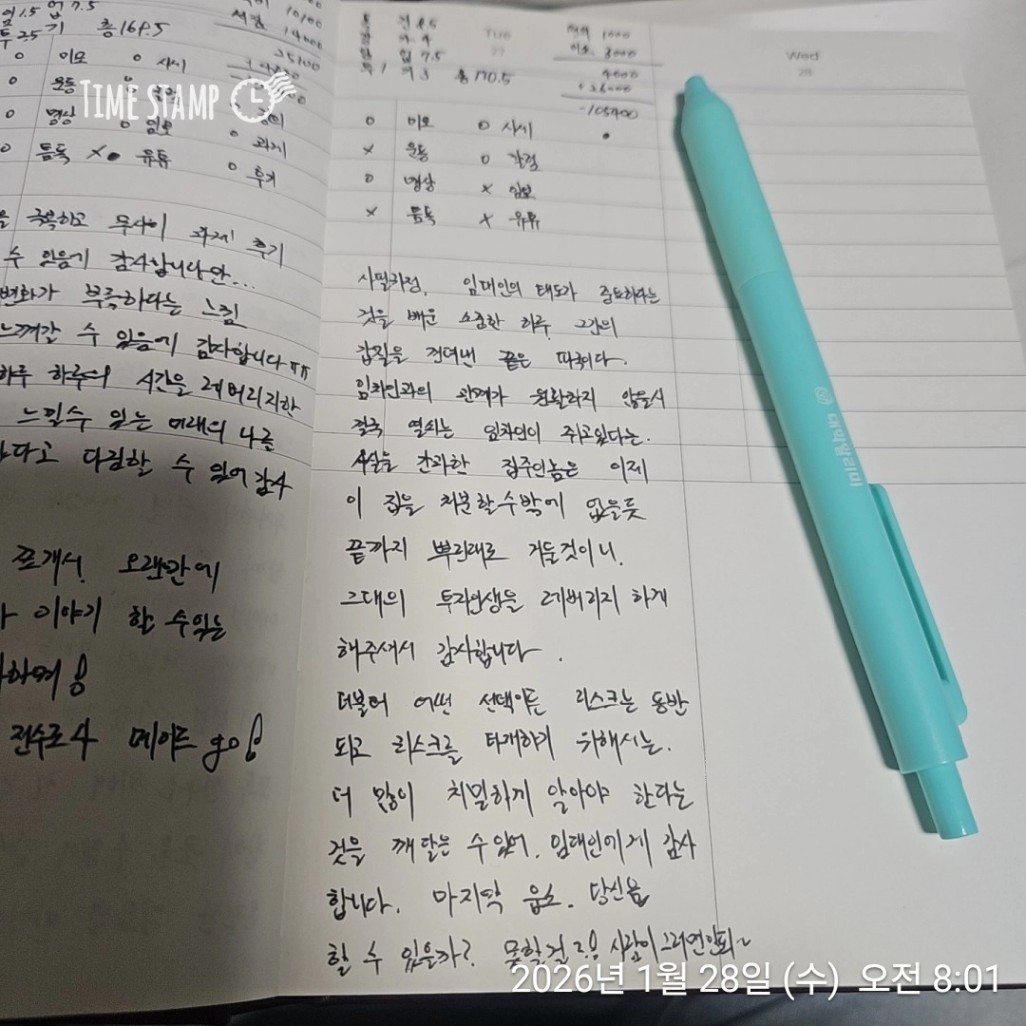 총 169.5
이모 o 사시
o 운동
o 명상 o 임보 o 과제
o 틈독 x 유튜 o 후기
극복하고 무사히 과제 후기
수 있음에 감사합니다만...
변화가 부족하다는 느낌
느껴갈 수 있음에 감사합니다ㅠㅠ
하루 하루의 시간을 레버리지한
느낄수 있는 미래의 나를
다고 다짐할 수 있어 감사
쪼개서 오랜만에
이야기 할 수 있는
하며
전수로4 메이트 go!
TIME STAMP
Tue
27
입 7.5
독 1 총 170.5
4000
-105900
o 이모 o 사시
x 운동 o 감정
o 명상 x 임보
x 틈독 x 유튜
임대인의 태도가 중요하다는
것을 배운 소중한 하루. 그간의
갑질을 견뎌낸 끝은 따뜻하다.
임차인과의 관계가 원활하지 않을시
결국 열쇠는 임차인이 쥐고있다는.
사실을 간과한 집주인놈은 이제
이 집을 처분할수밖에 없을듯
끝까지 뿌린대로 거둘것이니.
그대의 투자인생을 레버리지 하게
해주셔서 감사합니다.
더불어 어떤 선택이든 리스크는 동반
되고 리스크를 타개하기 위해서는.
더 많이 치밀하게 알아야 한다는
것을 깨달을 수 있어. 임대인에게 감사
합니다. 마지막 음소. 당신은
할 수 있을까? 못할걸?! 사람이 그러면 안되~
Wed
28
대학알리미
2026년 1월 28일 (수) 오전 8:01